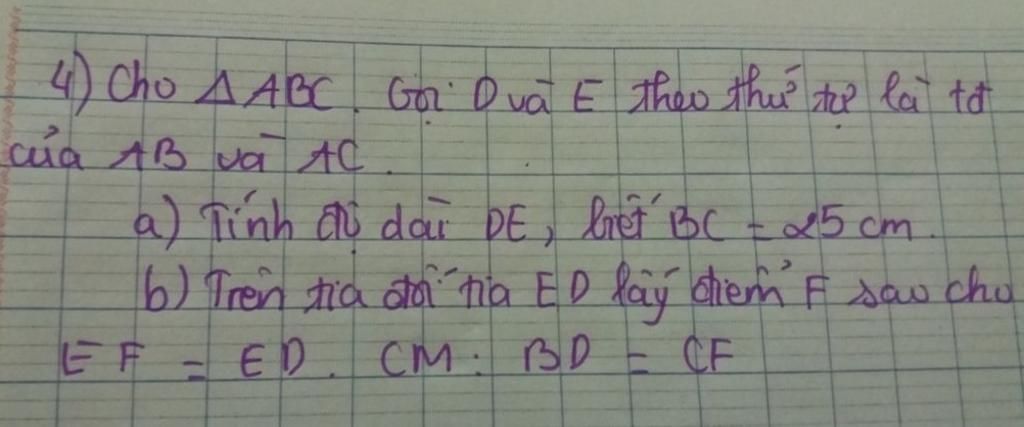 4) Cho ΔABC. Gọi D và E theo thứ tự là tđ
của AB và AC.
a) Tính độ dài DE, biết BC = 25 cm.
b) Trên tia đối tia ED lấy điểm F sao cho
EF = ED. CM: BD = CF